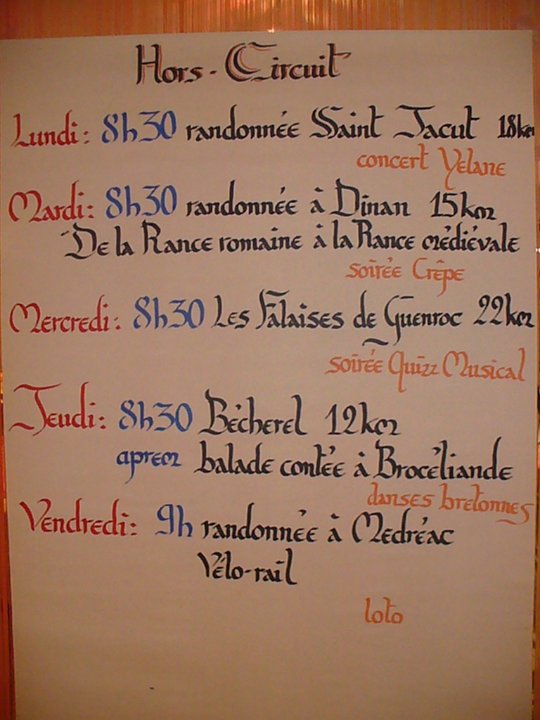 Hors-Circuit
Lundi: 8h30 randonnée Saint Jacut 18km
concert Yelane
Mardi: 8h30 randonnée à Dinan 15km
De la Rance romaine à la Rance médiévale
soirée Crêpe
Mercredi: 8h30 Les Falaises de Guenroc 22km
soirée Quizz Musical
Jeudi: 8h30 Bécherel 12km
aprem balade contée à Brocéliande
danses bretonnes
Vendredi: 9h randonnée à Medréac
Vélo-rail
loto